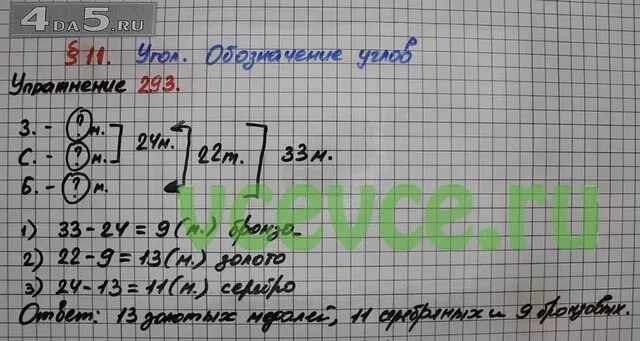 4DA5.RU
§ 11. Угол. Обозначение углов
Упражнение 293.
З. - ? м.
С. - ? м. 24м. 22м. 33м.
Б. - ? м.
1) 33 - 24 = 9 (м.) бронза
2) 22 - 9 = 13 (м.) золото
3) 24 - 13 = 11 (м.) серебро
Ответ: 13 золотых медалей, 11 серебряных и 9 бронзовых.
vcevce.ru